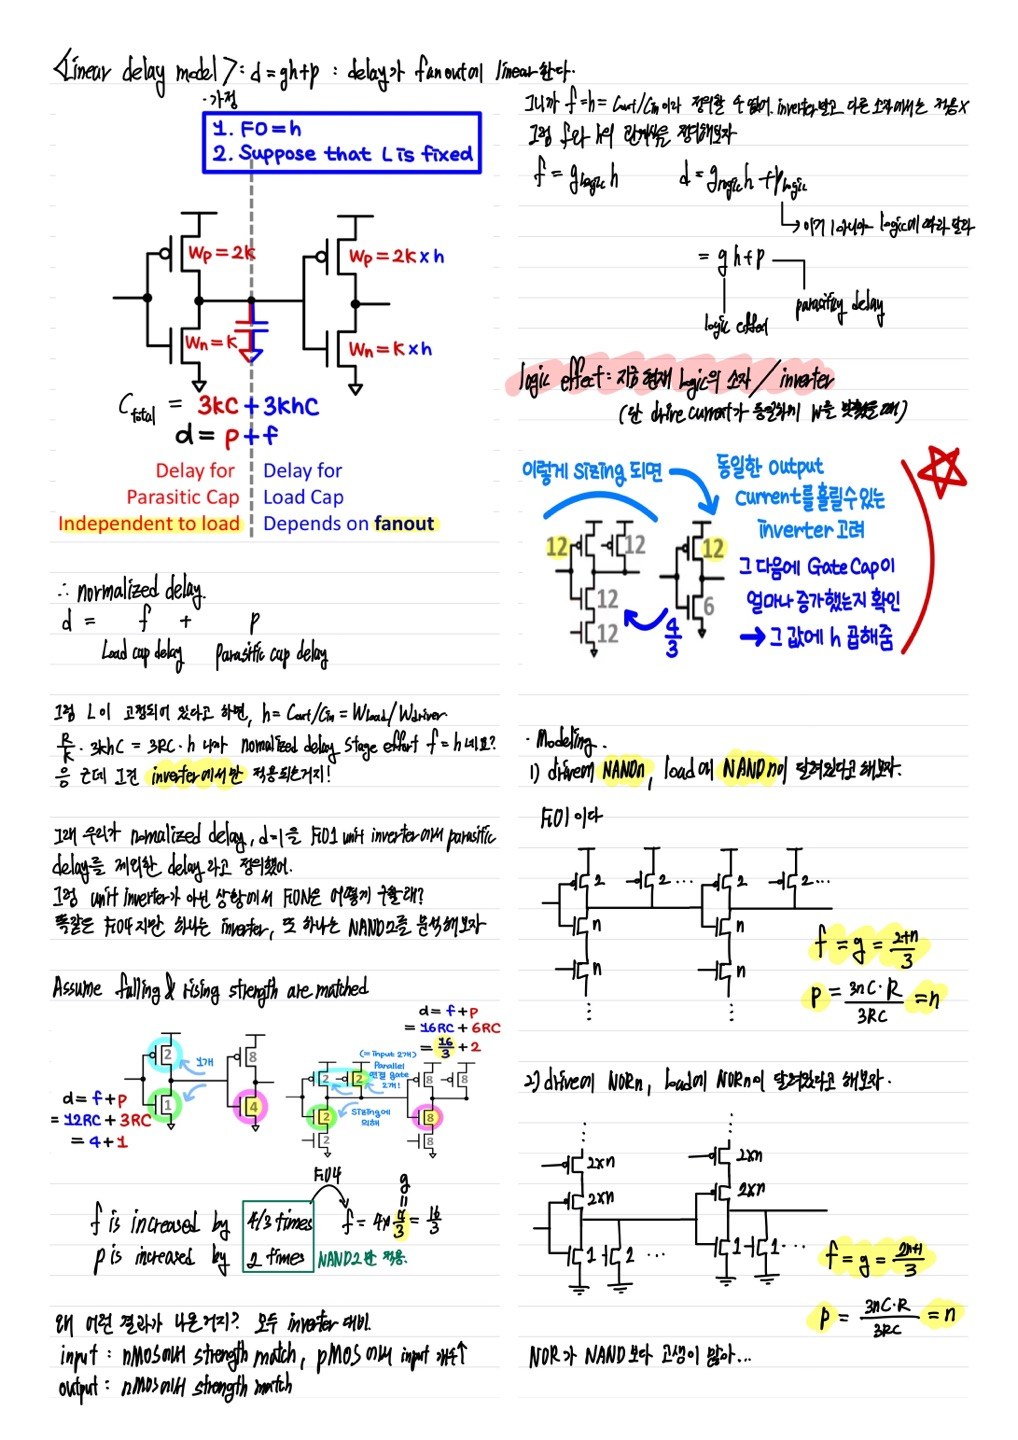 <Linear delay model> : d = gh+p : delay가 fanout에 linear한다.
· 가정
1. FO = h
2. Suppose that L is fixed
Wp = 2k
Wp = 2k × h
Wn = k
Wn = k × h
Ctotal = 3kC + 3khC
d = p + f
Delay for Parasitic Cap
Independent to load
Delay for Load Cap
Depends on fanout
∴ normalized delay.
d = f + p
Load cap delay
Parasitic cap delay
그럼 L이 고정되어 있다고 하면, h = Cout/Cin = Wload/Wdriver
R/k · 3khC = 3RC · h 니까 normalized delay stage effort f = h 네요?
응 근데 그건 inverter에서만 적용되는거지!
그래 우리가 normalized delay, d=1을 FO1 unit inverter에서 parasitic
delay를 제외한 delay 라고 정의했어.
그럼 unit inverter가 아닌 상황에서 FON은 어떻게 구할래?
똑같은 FO4지만 하나는 inverter, 또 하나는 NAND2를 분석해보자
Assume falling & rising strength are matched
2
1
1개
8
4
d = f + p
= 12RC + 3RC
= 4 + 1
d = f + p
= 16RC + 6RC
= 16/3 + 2
(= Input 2개)
Parallel
연결 gate
2개!
2
2
2
2
Sizing에
의해
8
8
8
8
f is increased by 4/3 times
FO4
f = 4 × 4/3 = 16/3
g
=
p is increased by 2 times
NAND2만 적용.
왜 이런 결과가 나온거지? 모두 inverter 대비.
input : nMOS에서 strength match, pMOS에서 input 개수↑
output : nMOS에서 strength match
그니까 f=h= Cout/Cin이라 정의할 수 없어. inverter 말고 다른 소자에서는 적용X
그럼 f와 h의 관계식을 정의해보자
f = glogic h
d = glogic h + plogic
→ 이거 1 아니야 logic에 따라 달라
= gh+p
logic effect
parasitic delay
logic effect : 지금 현재 logic의 소자 / inverter
(단 drive current가 동일하게 W을 맞췄을 때)
이렇게 Sizing 되면
동일한 output
Current를 흘릴수 있는
inverter 고려
12
12
12
12
12
6
4/3
그 다음에 Gate Cap이
얼마나 증가했는지 확인
→ 그 값에 h 곱해줌
· Modeling.
1) drive에 NANDn, load에 NANDn이 달려있다고 해보자.
FO1 이다
2
2 ···
n
n
2
2 ···
n
n
f = g = 2+n/3
p = 3nC·R/3RC = n
2) drive에 NORn, load에 NORn이 달려있다고 해보자.
2×n
2×n
1
2
···
2×n
2×n
1
1 ···
f = g = 2n+1/3
p = 3nC·R/3RC = n
NOR가 NAND보다 고생이 많아...